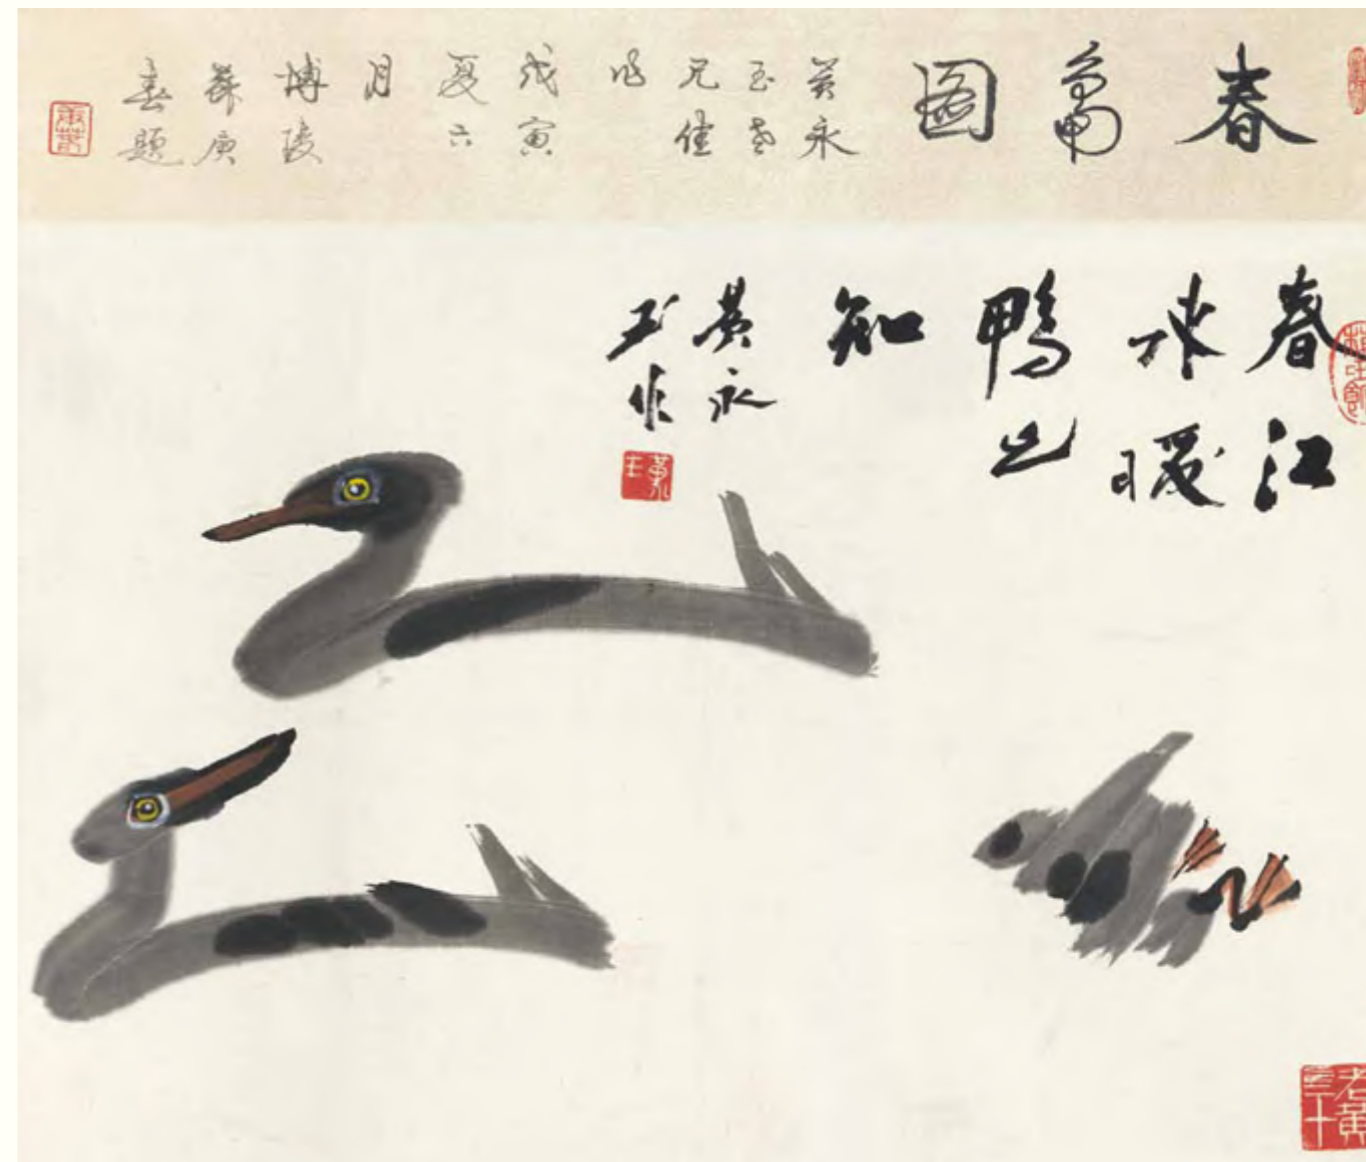 春禽圖
黄永
玉老
兄佳
作
戊寅
夏六
月
博陵
蘇庚
春題
春江
水暖
鴨之
知
黄永
玉作
黄永玉